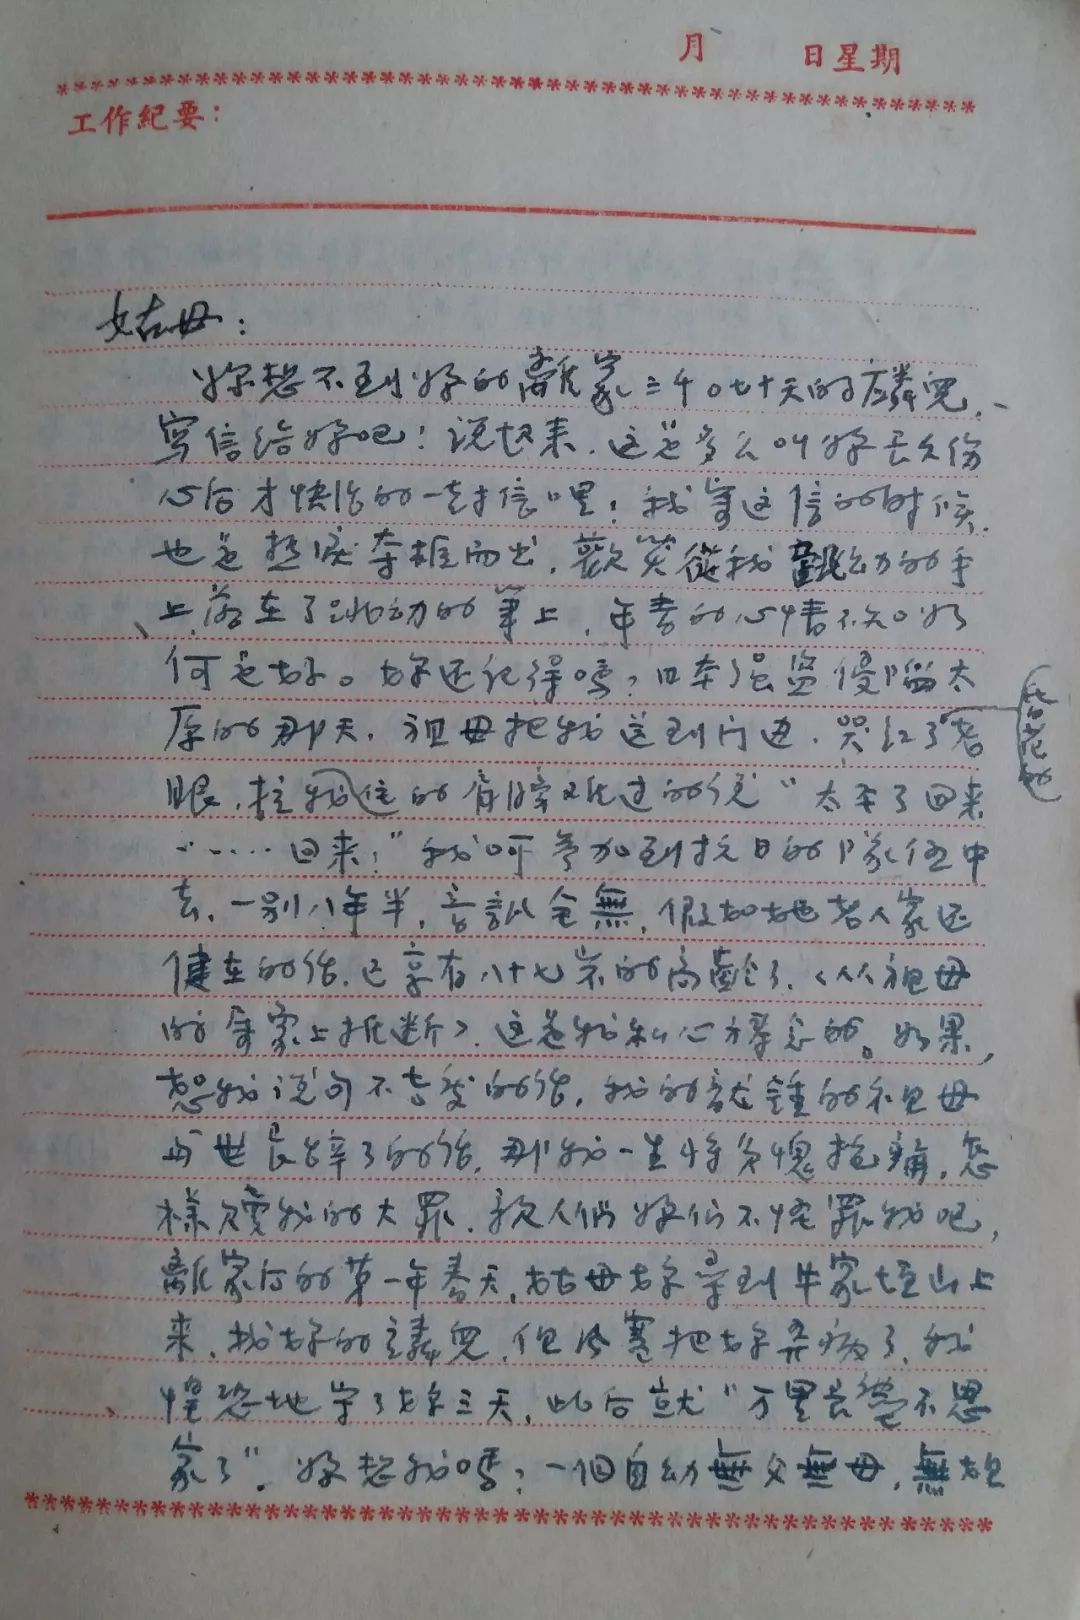 月 日星期
工作紀要：
姑母：
妳想不到妳的離家三千〇七十天的麟兒，
写信给妳吧！说起来，这是多么叫妳長久伤
心后才快活的一封信哩！我写这信的时候，
也是热淚夺框而出，歡笑從我跳动的手
上落在了跳动的筆上，年青的心情不知如
何是好。妳还记得嗎？日本强盗侵臨太
原的那天，祖母把我送到门边，哭红了老
眼，拉我住的肩膀难过的说“太平了回来
……回来！”我呵参加到抗日的隊伍中
去，一别八年半，音訊全無，假如她老人家还
健在的话，已享有八十七岁的高齡了，（从祖母
的 家上推断）这是我私心 念的。如果，
恕我说句不孝的话，我的龍鍾的祖母
与世長辞了的话，那我一生将负愧抱痛，怎
樣 我的大罪，親人們妳们不怪罪我吧，
離家后的第一年春天，姑母妳尋到牛家垴山上
来，找妳的麟兒，但冷寒把妳弄病了，我
惶恐地守了妳三天，此后就“万里長 不思
家了”。妳想我嗎？一個自幼無父無母，無姐